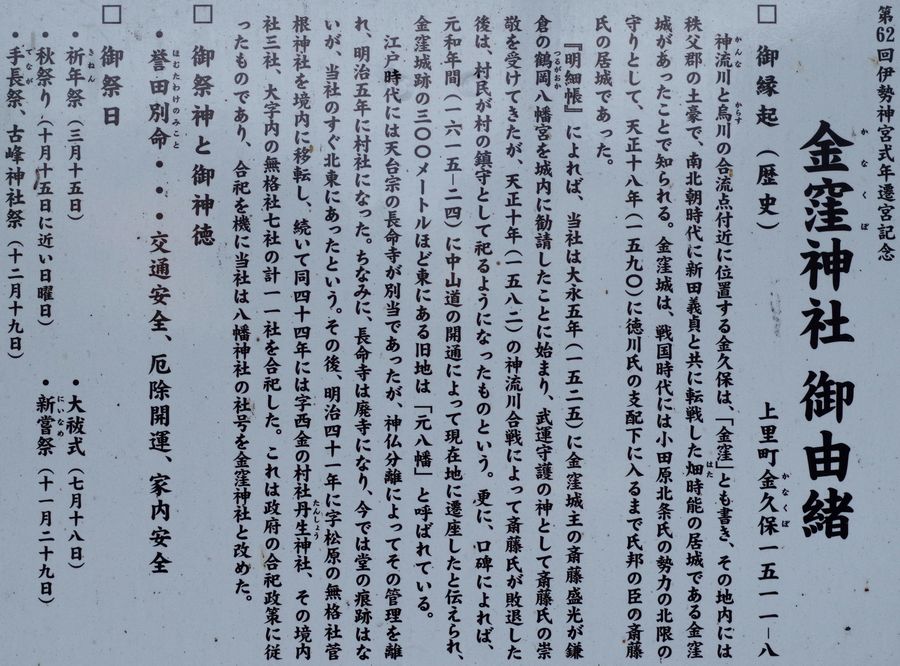 第62回伊勢神宮式年遷宮記念
金窪神社 御由緒
かなくぼ
□ 御縁起（歴史）
上里町金久保一五一一－八
かなくぼ
神流川と烏川の合流点付近に位置する金久保は、「金窪」とも書き、その地内には
かんな からす
秩父郡の土豪で、南北朝時代に新田義貞と共に転戦した畑時能の居城である金窪
はた
城があったことで知られる。金窪城は、戦国時代には小田原北条氏の勢力の北限の
守りとして、天正十八年（一五九〇）に徳川氏の支配下に入るまで氏邦の臣の斎藤
氏の居城であった。
『明細帳』によれば、当社は大永五年（一五二五）に金窪城主の斎藤盛光が鎌
倉の鶴岡八幡宮を城内に勧請したことに始まり、武運守護の神として斎藤氏の崇
つるがおか
敬を受けてきたが、天正十年（一五八二）の神流川合戦によって斎藤氏が敗退した
後は、村民が村の鎮守として祀るようになったものという。更に、口碑によれば、
元和年間（一六一五－二四）に中山道の開通によって現在地に遷座したと伝えられ、
金窪城跡の三〇〇メートルほど東にある旧地は「元八幡」と呼ばれている。
江戸時代には天台宗の長命寺が別当であったが、神仏分離によってその管理を離
れ、明治五年に村社になった。ちなみに、長命寺は廃寺になり、今では堂の痕跡はな
いが、当社のすぐ北東にあったという。その後、明治四十一年に字松原の無格社菅
根神社を境内に移転し、続いて同四十四年には字西金の村社丹生神社、その境内
たんしょう
社三社、大字内の無格社七社の計一一社を合祀した。これは政府の合祀政策に従
ったものであり、合祀を機に当社は八幡神社の社号を金窪神社と改めた。
□ 御祭神と御神徳
・誉田別命・・・交通安全、厄除開運、家内安全
ほむたわけのみこと
□ 御祭日
・祈年祭（三月十五日）
きねん
・大祓式（七月十八日）
・秋祭り（十月十五日に近い日曜日）
・新嘗祭（十一月二十九日）
にいなめ
・手長祭、古峰神社祭（十二月十九日）
てなが